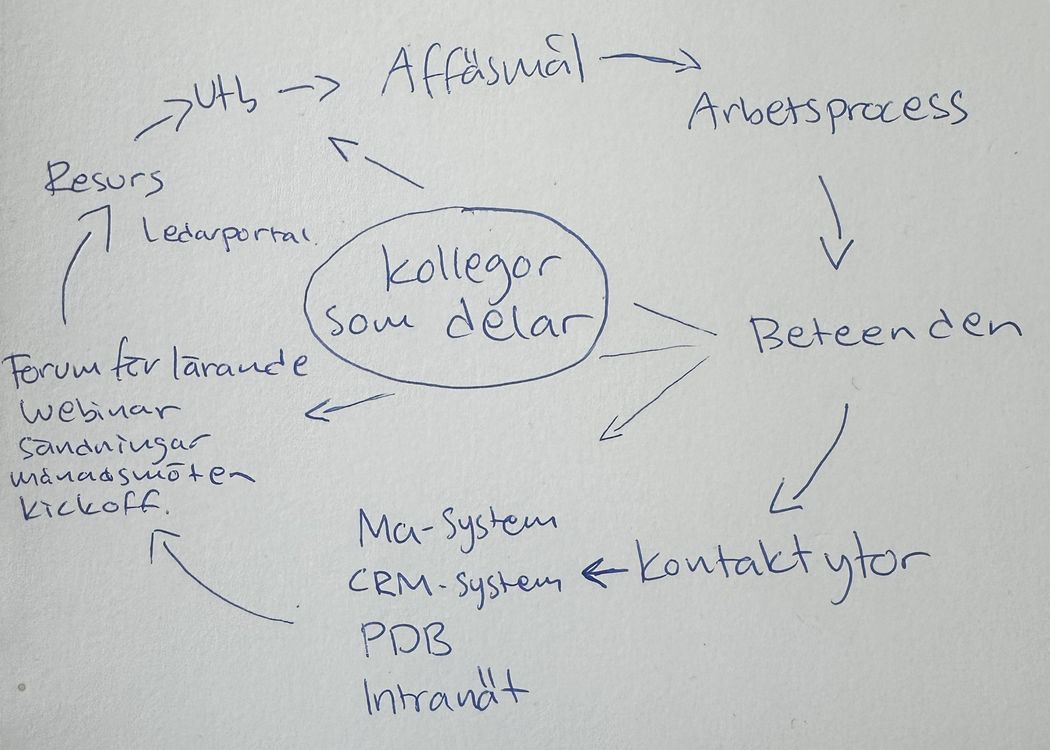 Utb
Affäsmål
Arbetsprocess
Resurs
Ledarportal.
kollegor
som delar
Beteenden
Forum för lärande
Webinar
Sändningar
månadsmöten
kickoff.
Ma-System
CRM-System
PDB
Intranät
kontaktytor